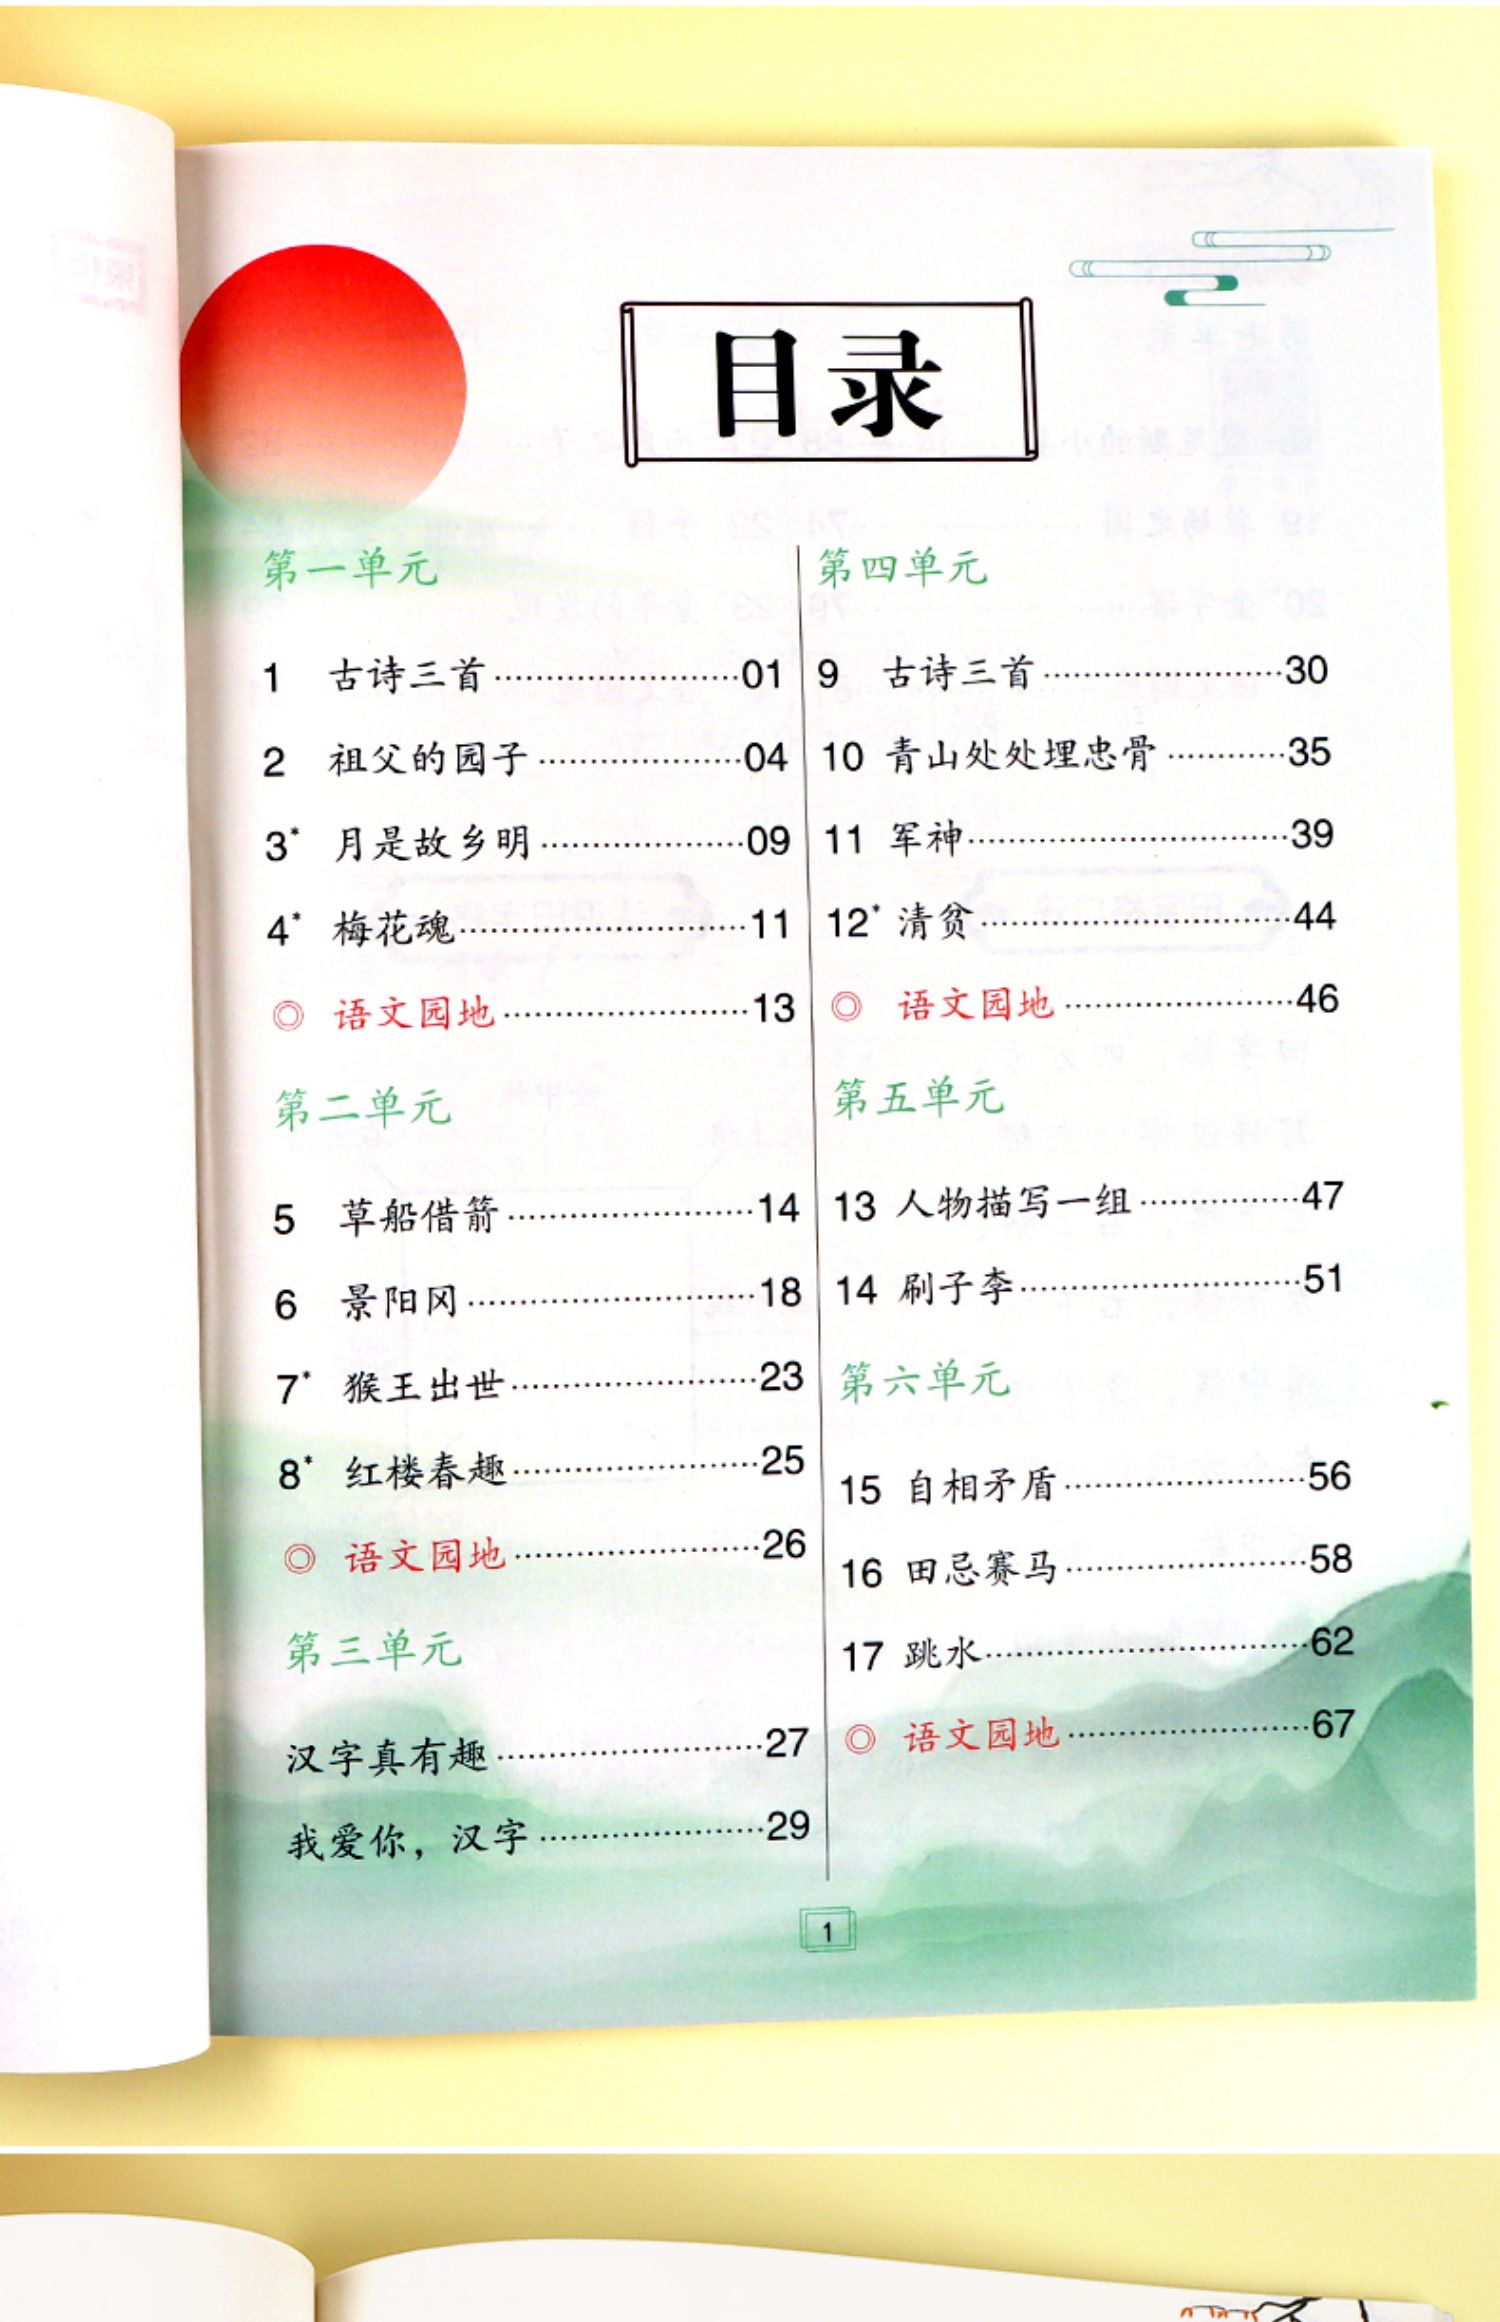 目录
第一单元
1 古诗三首……………………01
2 祖父的园子…………………04
3* 月是故乡明…………………09
4* 梅花魂………………………11
◎ 语文园地……………………13
第二单元
5 草船借箭……………………14
6 景阳冈………………………18
7* 猴王出世……………………23
8* 红楼春趣……………………25
◎ 语文园地……………………26
第三单元
汉字真有趣……………………27
我爱你，汉字…………………29
第四单元
9 古诗三首……………………30
10 青山处处埋忠骨…………35
11 军神…………………………39
12* 清贫…………………………44
◎ 语文园地……………………46
第五单元
13 人物描写一组……………47
14 刷子李………………………51
第六单元
15 自相矛盾……………………56
16 田忌赛马……………………58
17 跳水…………………………62
◎ 语文园地……………………67
1